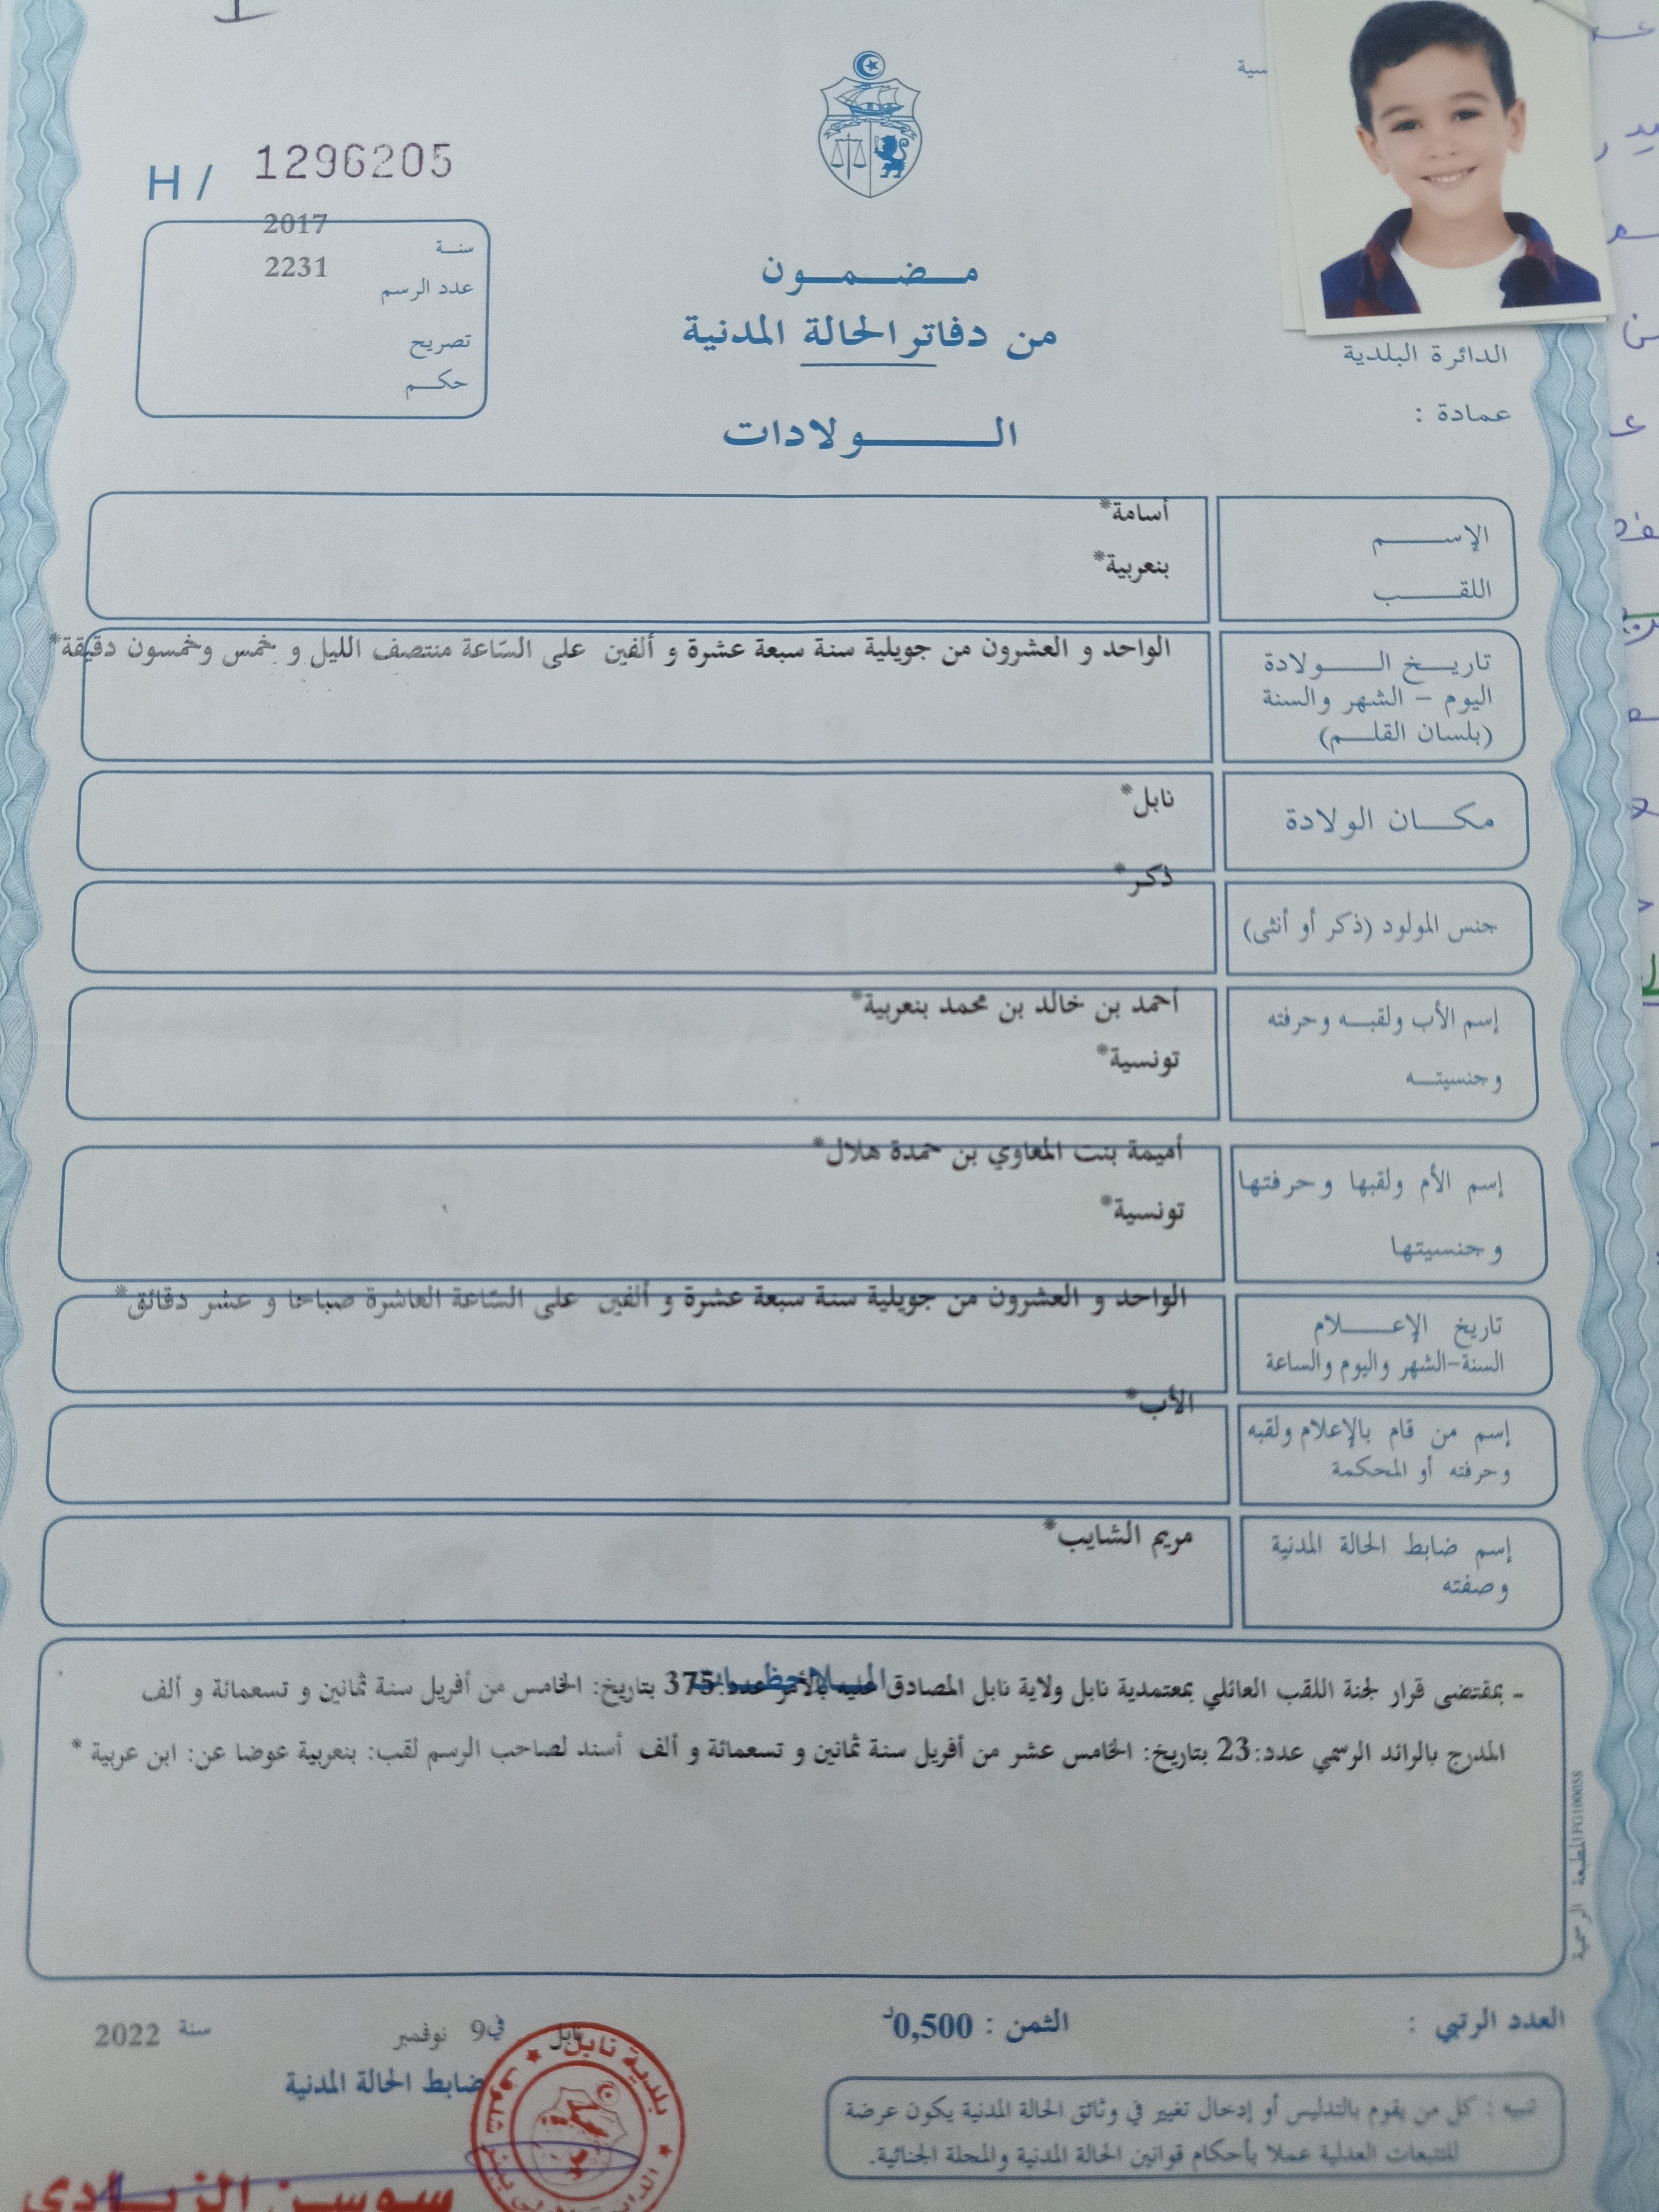 H / 1296205
سنة 2017
عدد الرسم 2231
تصريح
حكم
مضمون
من دفاتر الحالة المدنية
الولادات
الدائرة البلدية
عمادة :
الإسم أسامة*
اللقب بنعربية*
تاريخ الولادة الواحد و العشرون من جويلية سنة سبعة عشرة و ألفين على السّاعة منتصف الليل و خمس وخمسون دقيقة*
اليوم - الشهر والسنة
(بلسان القلم)
مكان الولادة نابل*
جنس المولود (ذكر أو أنثى) ذكر*
إسم الأب ولقبه وحرفته أحمد بن خالد بن محمد بنعربية*
وجنسيته تونسية*
إسم الأم ولقبها وحرفتها أميمة بنت المعاوي بن حمدة هلال*
وجنسيتها تونسية*
تاريخ الإعلام الواحد و العشرون من جويلية سنة سبعة عشرة و ألفين على السّاعة العاشرة صباحا و عشر دقائق*
السنة-الشهر واليوم والساعة
إسم من قام بالإعلام ولقبه الأب*
وحرفته أو المحكمة
إسم ضابط الحالة المدنية مريم الشايب*
وصفته
الملاحظات
- بمقتضى قرار لجنة اللقب العائلي بمعتمدية نابل ولاية نابل المصادق عليه بالأمر عدد:375 بتاريخ: الخامس من أفريل سنة ثمانين و تسعمائة و ألف
المدرج بالرائد الرسمي عدد:23 بتاريخ: الخامس عشر من أفريل سنة ثمانين و تسعمائة و ألف أسند لصاحب الرسم لقب: بنعربية عوضا عن: ابن عربية *
المطبعة الرسمية
العدد الرتبي :
الثمن : 0,500د
نابل في 9 نوفمبر سنة 2022
ضابط الحالة المدنية
تنبيه : كل من يقوم بالتدليس أو إدخال تغيير في وثائق الحالة المدنية يكون عرضة
للتتبعات العدلية عملا بأحكام قوانين الحالة المدنية والمجلة الجنائية.
بلدية نابل
سوسن الزيادي